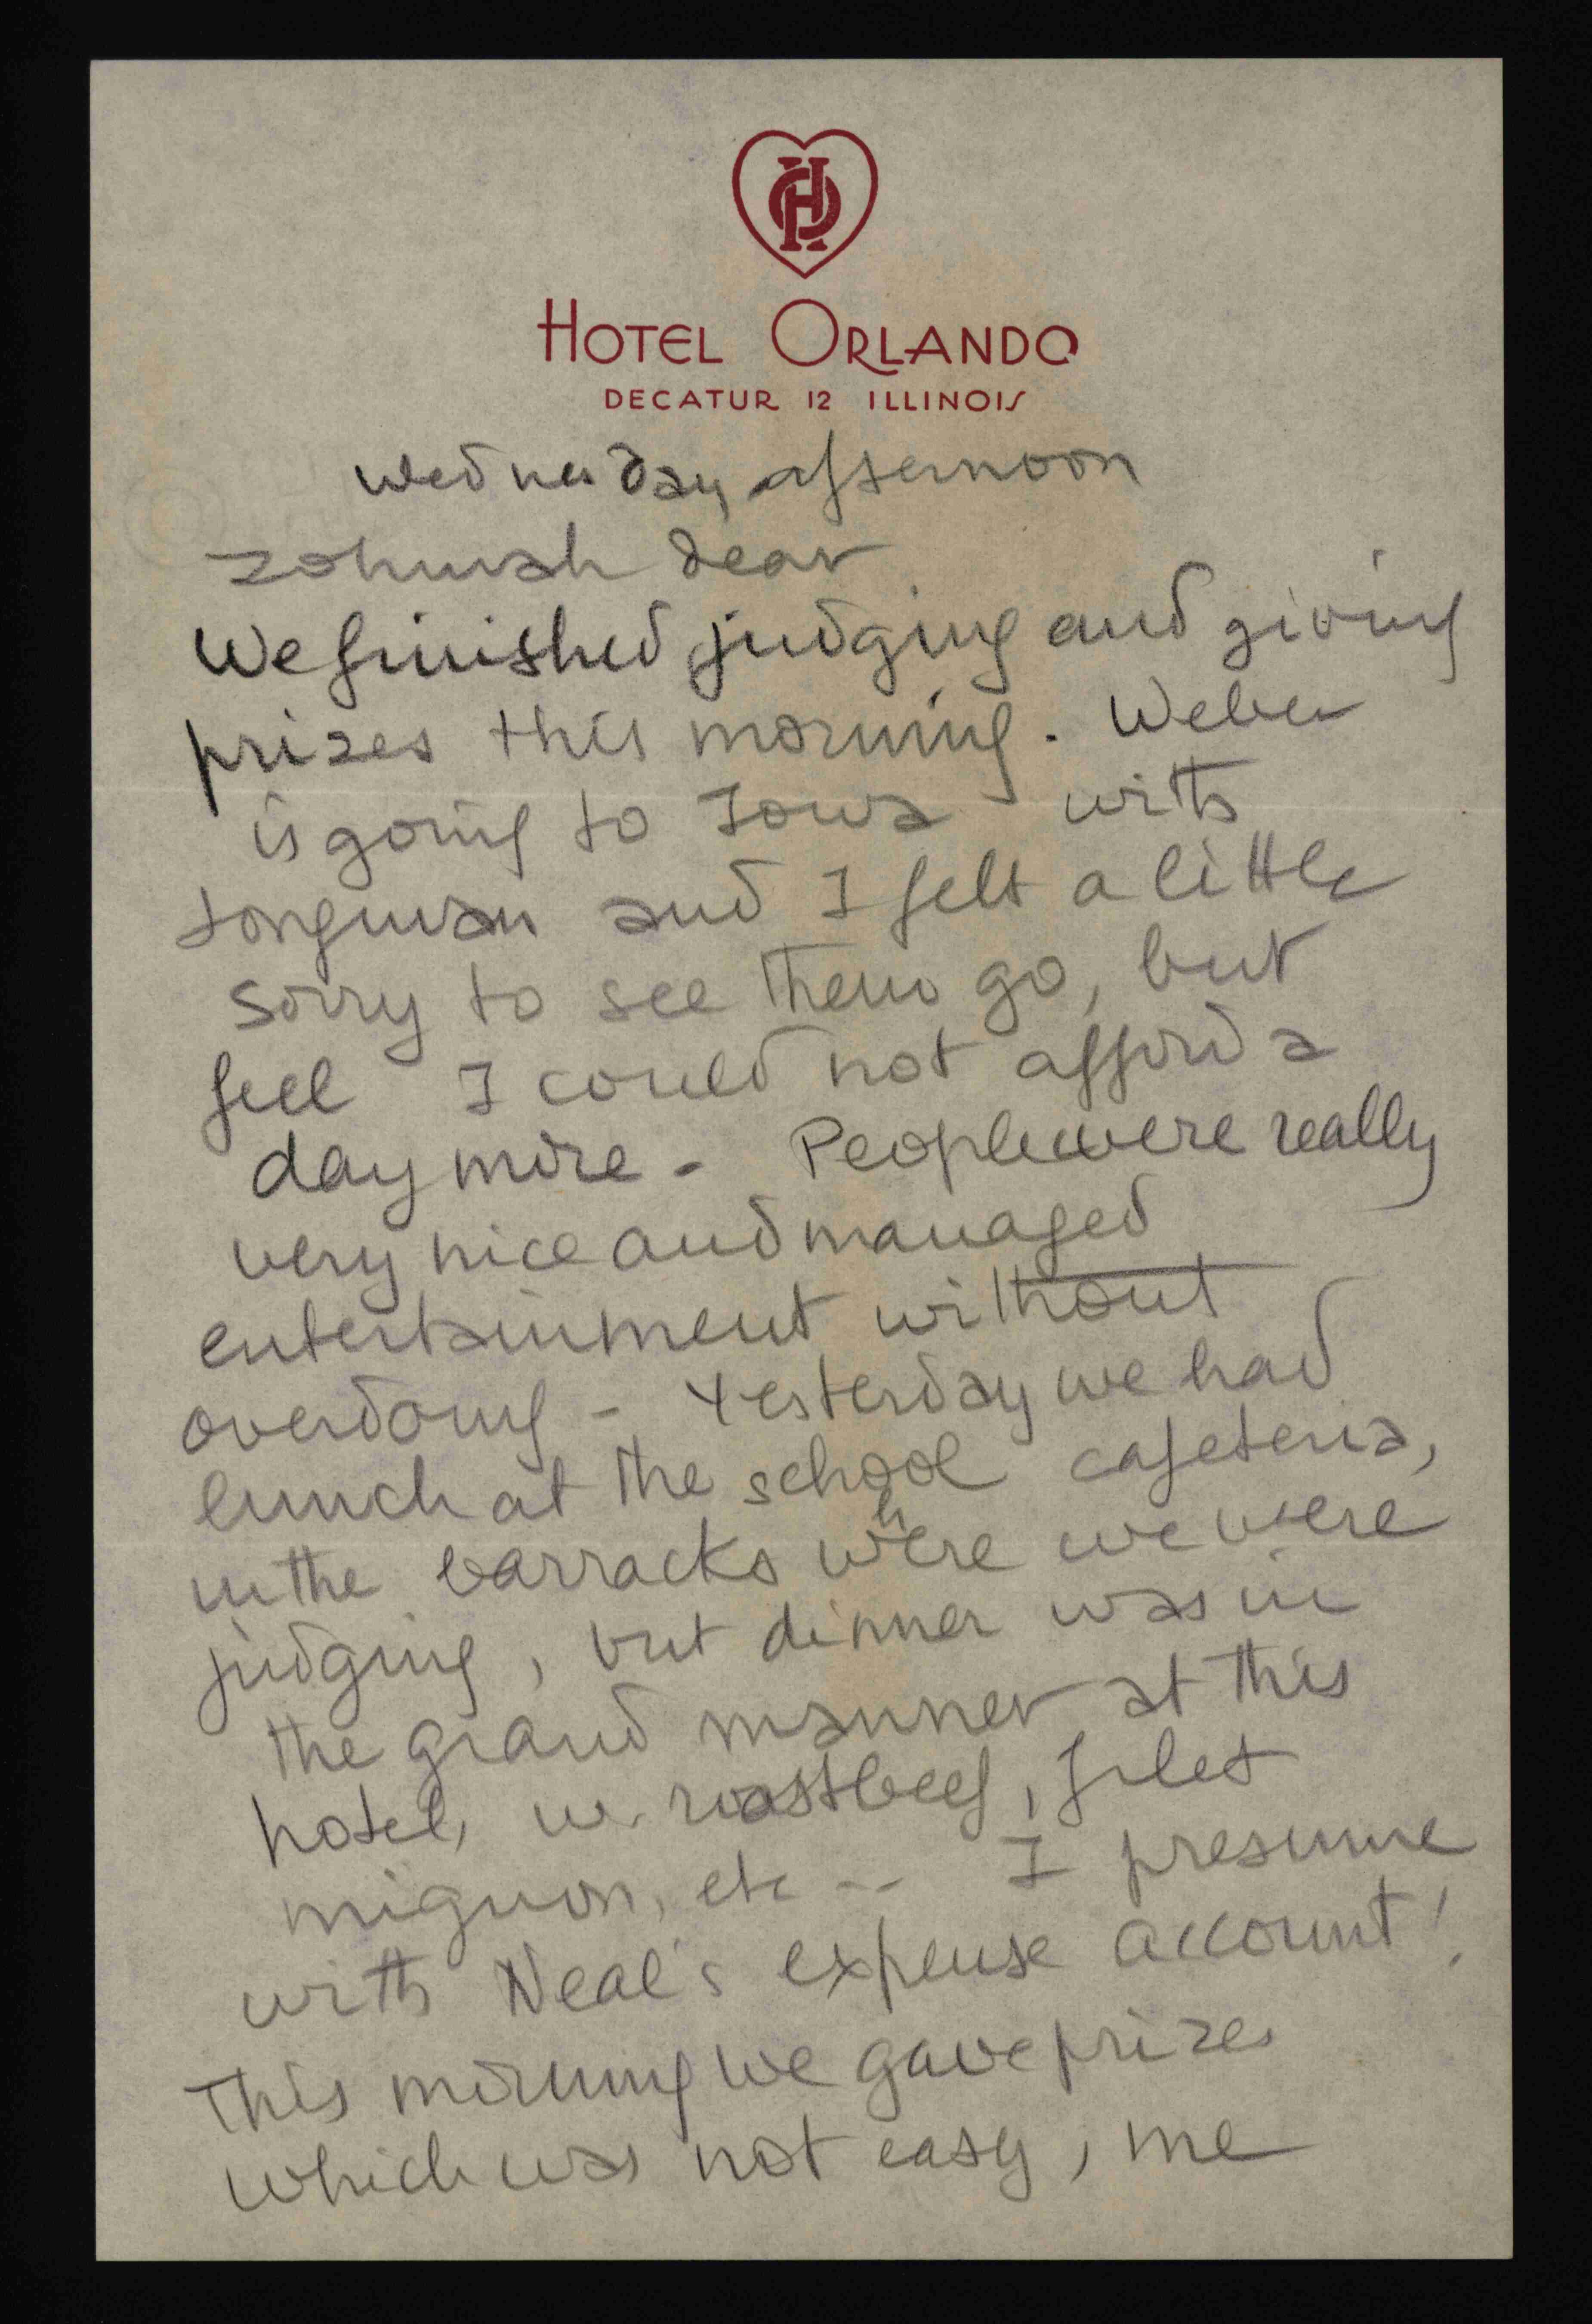 HO
HOTEL ORLANDO
DECATUR 12 ILLINOIS
Wednesday afternoon
Zohmah dear
We finished judging and giving
prizes this morning. Weber
is going to Iowa with
Longman and I felt a little
sorry to see them go, but
feel I could not afford a
day more - People were really
very nice and managed
entertainment without
overdoing - Yesterday we had
lunch at the school cafeteria,
in the barracks where we were
judging, but dinner was in
the grand manner at this
hotel, w. roastbeef, filet
mignon, etc -- I presume
with Neal's expense account!
This morning we gave prizes
which was not easy, me